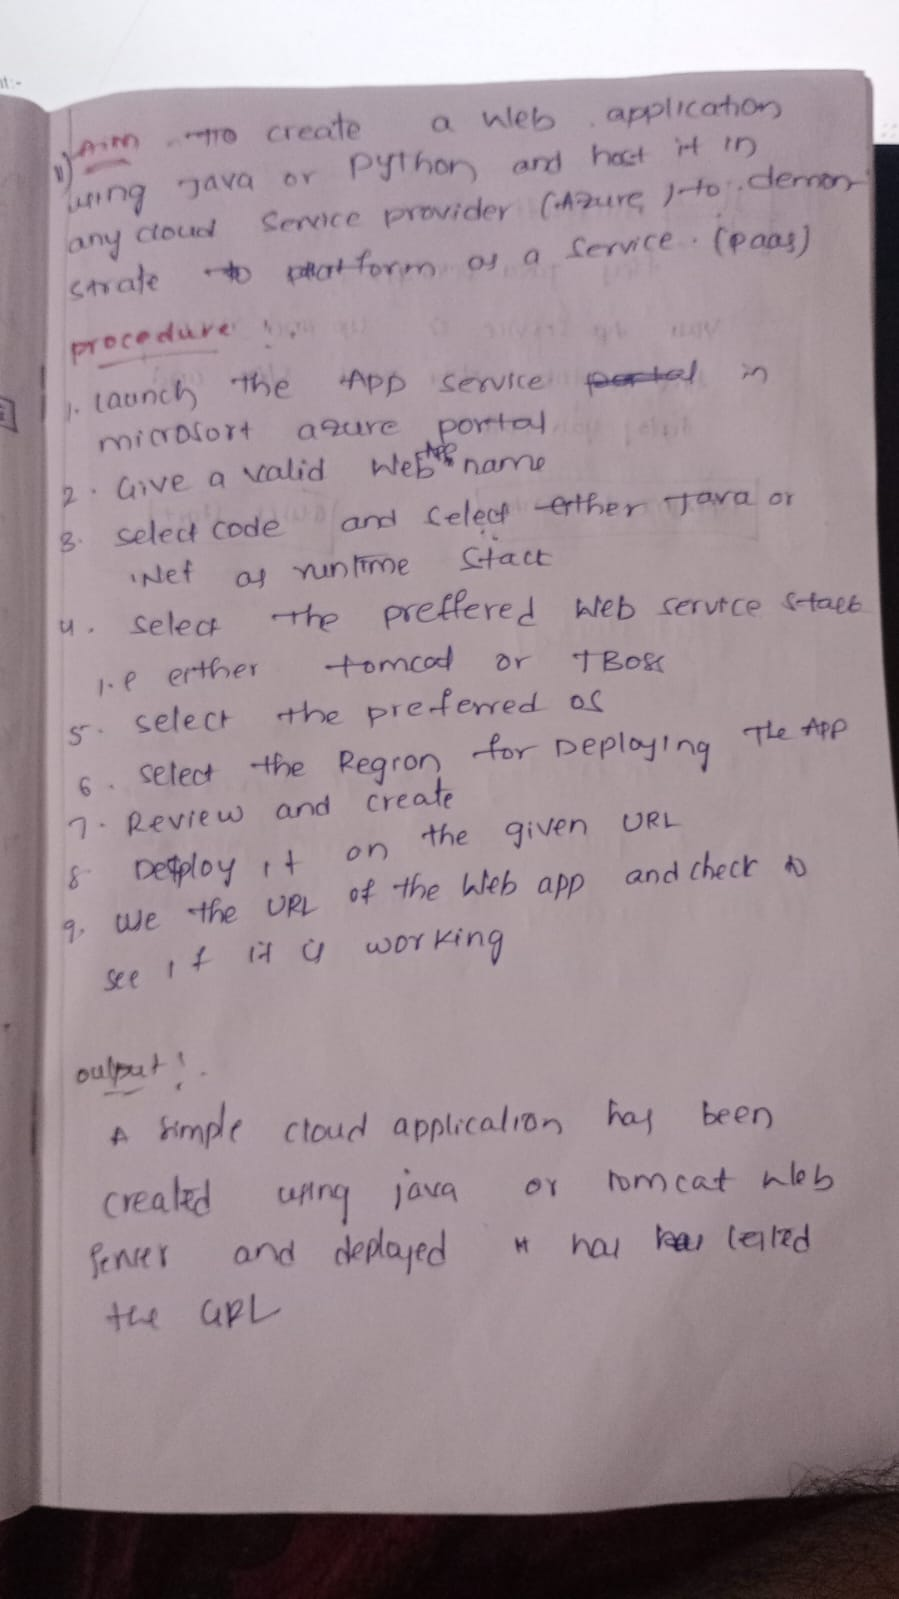 nt:-
11) Aim to create a Web application
using Java or Python and host it in
any cloud Service provider (Azure) to demon
strate to platform as a Service. (paas)
procedure:
1. Launch the App service portal in
microsort azure portal
2. Give a valid Web App name
3. select code and select either Java or
.Net as runtime Stack
4. select the preffered Web service stack
i.e either tomcat or JBoss
5. select the preferred os
6. select the Region for Deploying The App
7. Review and create
8 Deploy it on the given URL
9. use the URL of the Web app and check to
see if it is working
output:
A simple cloud application has been
created using java or tomcat web
server and deployed it has tested
the URL